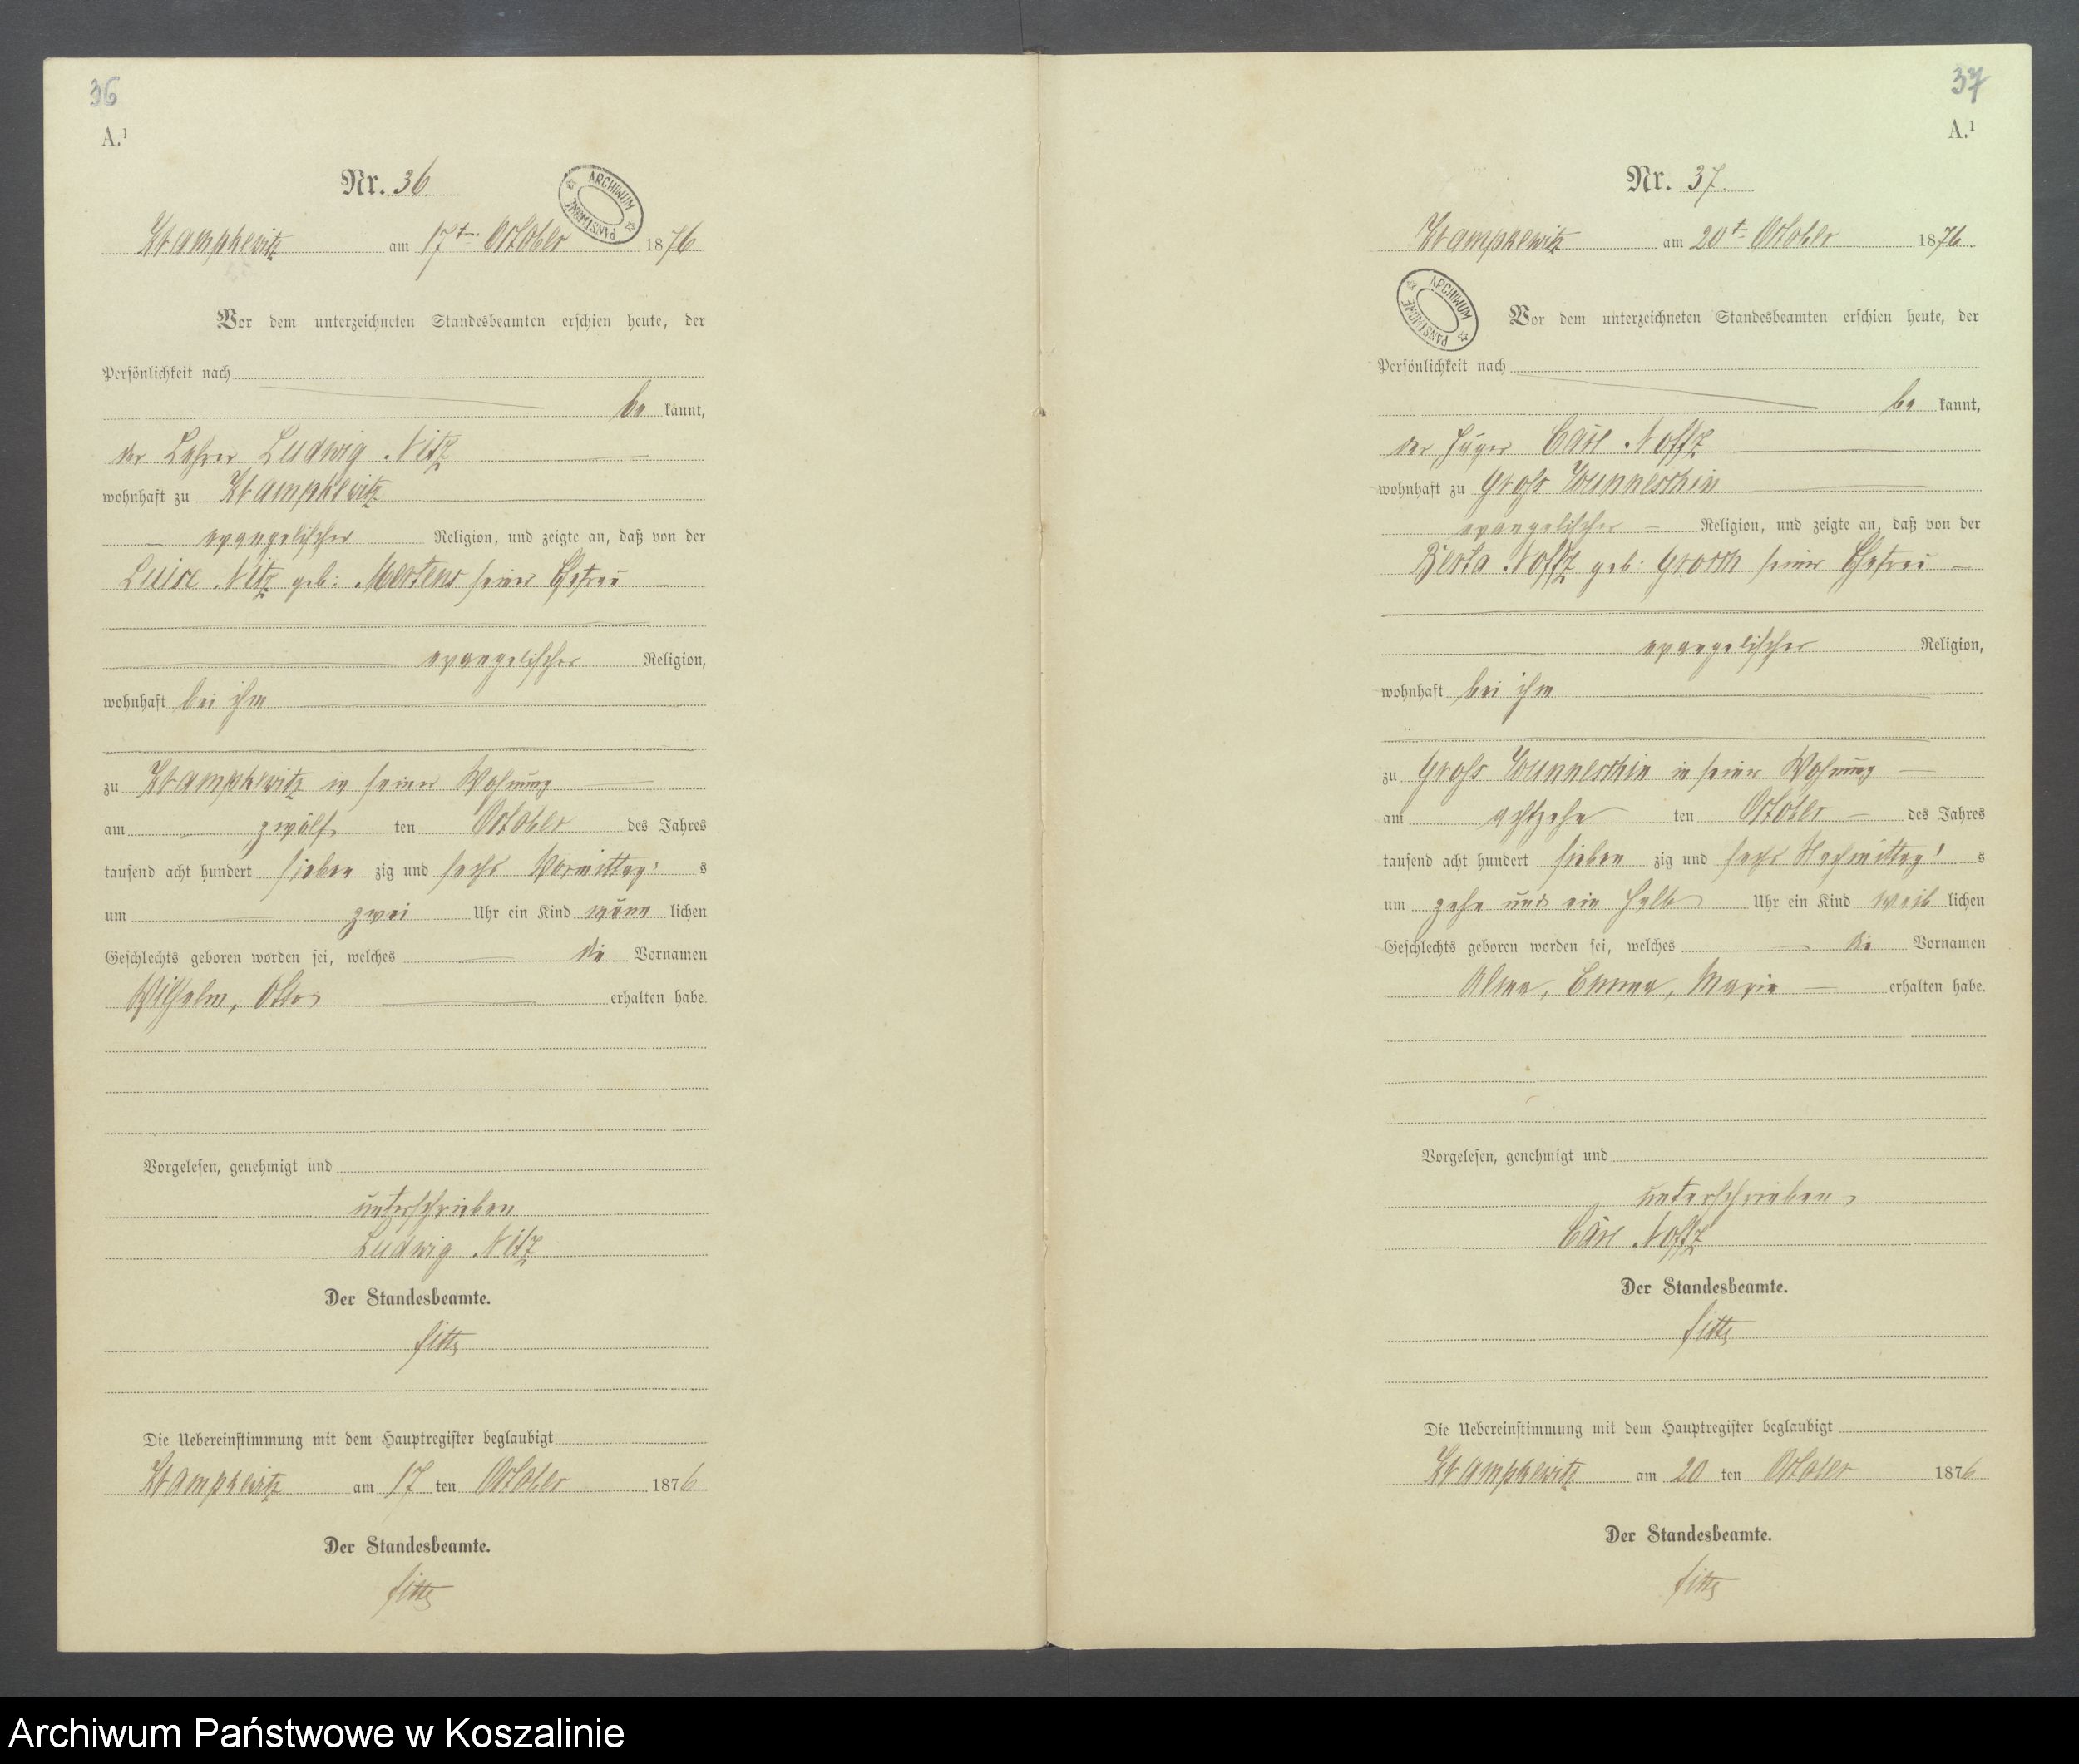 36
A.¹
Nr. 36.
ARCHIWUM PAŃSTWOWE
Krampkewitz am 17ten October 1876
Vor dem unterzeichneten Standesbeamten erschien heute, der
Persönlichkeit nach
be kannt,
der Lehrer Ludwig Nitz
wohnhaft zu Krampkewitz
evangelischer Religion, und zeigte an, daß von der
Luise Nitz geb: Mertens seiner Ehefrau
evangelischer Religion,
wohnhaft bei ihm
zu Krampkewitz in seiner Wohnung
am zwölf ten October des Jahres
tausend acht hundert sieben zig und sechs Vormittag s
um zwei Uhr ein Kind männ lichen
Geschlechts geboren worden sei, welches die Vornamen
Wilhelm, Otto erhalten habe.
Vorgelesen, genehmigt und
unterschrieben
Ludwig Nitz
Der Standesbeamte.
Die Uebereinstimmung mit dem Hauptregister beglaubigt
Krampkewitz am 17 ten October 1876
Der Standesbeamte.
37
A.¹
Nr. 37.
Krampkewitz am 20t October 1876
ARCHIWUM PAŃSTWOWE
Vor dem unterzeichneten Standesbeamten erschien heute, der
Persönlichkeit nach
be kannt,
der Jäger Carl Noffz
wohnhaft zu Gross Wunneschin
evangelischer Religion, und zeigte an, daß von der
Berta Noffz geb: Grosch seiner Ehefrau
evangelischer Religion,
wohnhaft bei ihm
zu Gross Wunneschin in seiner Wohnung
am achtzehn ten October des Jahres
tausend acht hundert sieben zig und sechs Nachmittag s
um zehn und ein halb Uhr ein Kind weib lichen
Geschlechts geboren worden sei, welches die Vornamen
Alma, Emma, Marie erhalten habe.
Vorgelesen, genehmigt und
unterschrieben
Carl Noffz
Der Standesbeamte.
Die Uebereinstimmung mit dem Hauptregister beglaubigt
Krampkewitz am 20 ten October 1876
Der Standesbeamte.
Archiwum Państwowe w Koszalinie